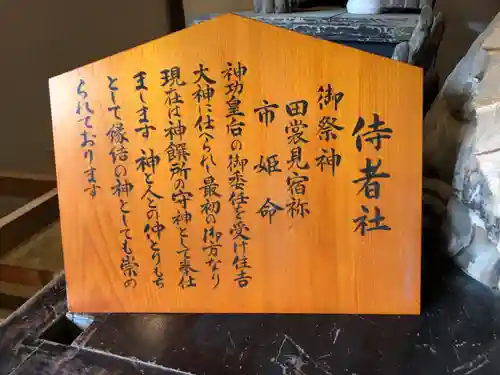 侍者社
御祭神
田裳見宿祢
市姫命
神功皇后の御委任を受け住吉
大神に仕られ最初の御方なり
現在は神饌所の守神として奉仕
まします 神と人との仲とりもち
として縁結の神としても崇の
られております